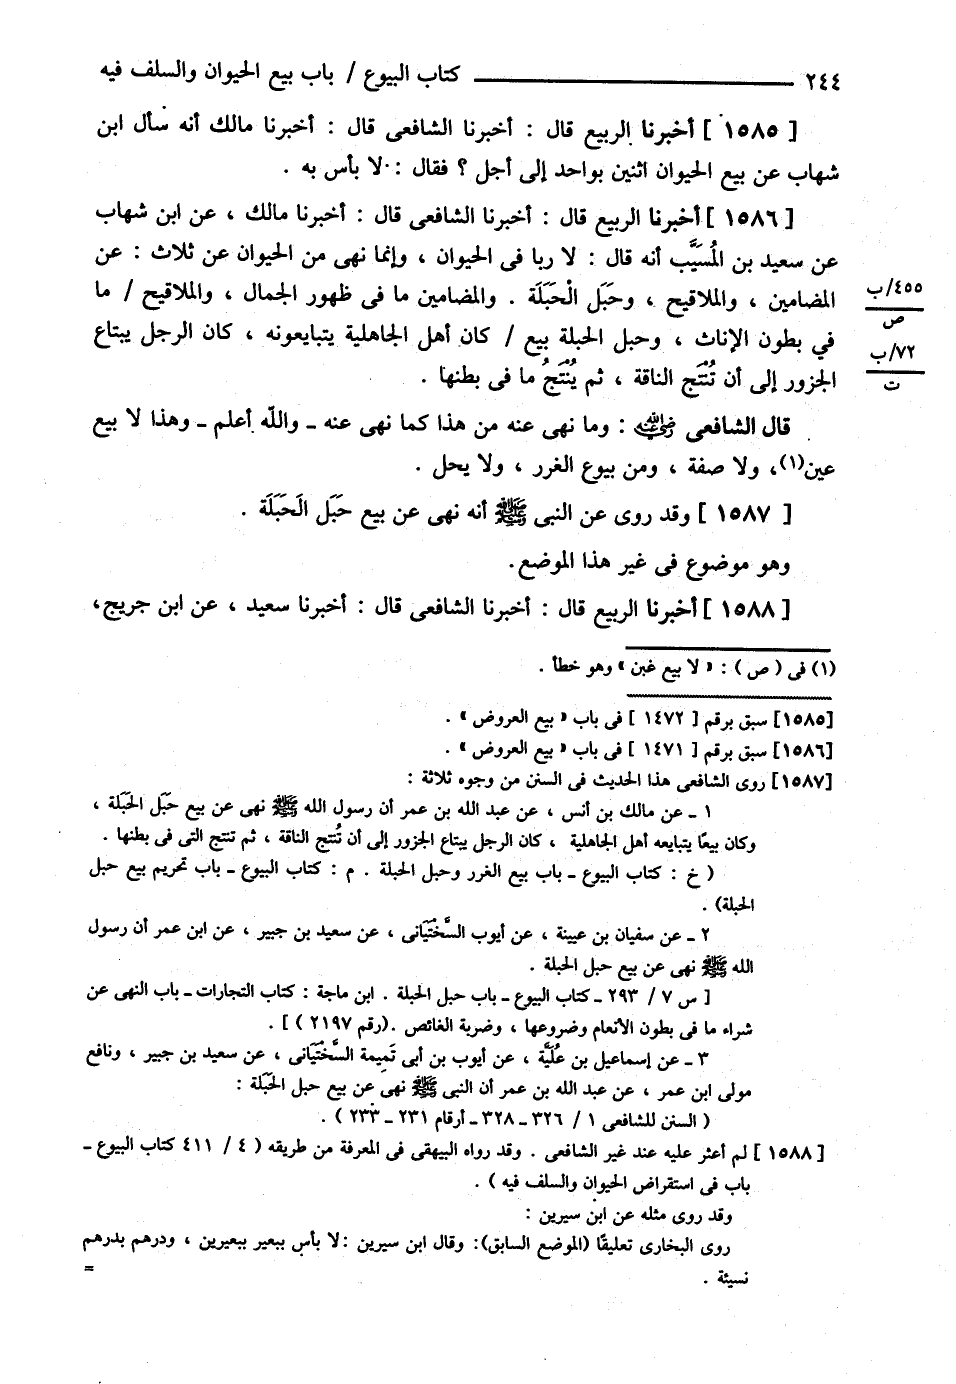 ٢٤٤ كتاب البيوع / باب بيع الحيوان والسلف فيه
[ ١٥٨٥ ] أخبرنا الربيع قال : أخبرنا الشافعى قال : أخبرنا مالك أنه سأل ابن
شهاب عن بيع الحيوان اثنين بواحد إلى أجل ؟ فقال : لا بأس به .
[ ١٥٨٦ ] أخبرنا الربيع قال : أخبرنا الشافعى قال : أخبرنا مالك ، عن ابن شهاب
عن سعيد بن المُسَيَّب أنه قال : لا ربا فى الحيوان ، وإنما نهى من الحيوان عن ثلاث : عن
المضامين ، والملاقيح ، وحَبَل الْحَبَلَة . والمضامين ما فى ظهور الجمال ، والملاقيح / ما
في بطون الإناث ، وحبل الحبلة بيع / كان أهل الجاهلية يتبايعونه ، كان الرجل يبتاع
الجزور إلى أن تُنْتَج الناقة ، ثم يُنْتَجُ ما فى بطنها .
٤٥٥/ب
ص
٧٢/ب
ت
قال الشافعى رضي الله عنه : وما نهى عنه من هذا كما نهى عنه ـ والله أعلم ـ وهذا لا بيع
عين(١)، ولا صفة ، ومن بيوع الغرر ، ولا يحل .
[ ١٥٨٧ ] وقد روى عن النبى ﷺ أنه نهى عن بيع حَبَل الَحَبَلَة .
وهو موضوع فى غير هذا الموضع.
[ ١٥٨٨ ] أخبرنا الربيع قال : أخبرنا الشافعى قال : أخبرنا سعيد ، عن ابن جريج،
(١) فى ( ص ) : « لا بيع غبن » وهو خطأ .
[١٥٨٥] سبق برقم [ ١٤٧٢ ] فى باب « بيع العروض » .
[١٥٨٦] سبق برقم [ ١٤٧١ ] فى باب « بيع العروض » .
[١٥٨٧] روى الشافعى هذا الحديث فى السنن من وجوه ثلاثة :
١ ـ عن مالك بن أنس ، عن عبد الله بن عمر أن رسول الله ﷺ نهى عن بيع حَبَل الحَبَلة ،
وكان بيعًا يتبايعه أهل الجاهلية ، كان الرجل يبتاع الجزور إلى أن تُنتج الناقة ، ثم تنتج التى فى بطنها .
( خ : كتاب البيوع ـ باب بيع الغرر وحبل الحبلة . م : كتاب البيوع ـ باب تحريم بيع حبل
الحبلة) .
٢ ـ عن سفيان بن عيينة ، عن أيوب السَّخْتَيَانى ، عن سعيد بن جبير ، عن ابن عمر أن رسول
الله ﷺ نهى عن بيع حبل الحبلة .
[ س ٧ / ٢٩٣ ـ كتاب البيوع ـ باب حبل الحبلة . ابن ماجة : كتاب التجارات ـ باب النهى عن
شراء ما فى بطون الأنعام وضروعها ، وضربة الغائص .(رقم ٢١٩٧ ) ] .
٣ ـ عن إسماعيل بن عُلَيَّة ، عن أيوب بن أبى تَمِيمة السَّخْتَيَانى ، عن سعيد بن جبير ، ونافع
مولى ابن عمر ، عن عبد الله بن عمر أن النبى ﷺ نهى عن بيع حبل الحَبَلة :
( السنن للشافعى ١ / ٣٢٦ ـ ٣٢٨ ـ أرقام ٢٣١ ـ ٢٣٣ ) .
[ ١٥٨٨ ] لم أعثر عليه عند غير الشافعى . وقد رواه البيهقى فى المعرفة من طريقه ( ٤ / ٤١١ كتاب البيوع ـ
باب فى استقراض الحيوان والسلف فيه ) .
وقد روى مثله عن ابن سيرين :
روى البخارى تعليقًا (الموضع السابق): وقال ابن سيرين :لا بأس ببعير ببعيرين ، ودرهم بدرهم
نسيئة .
=